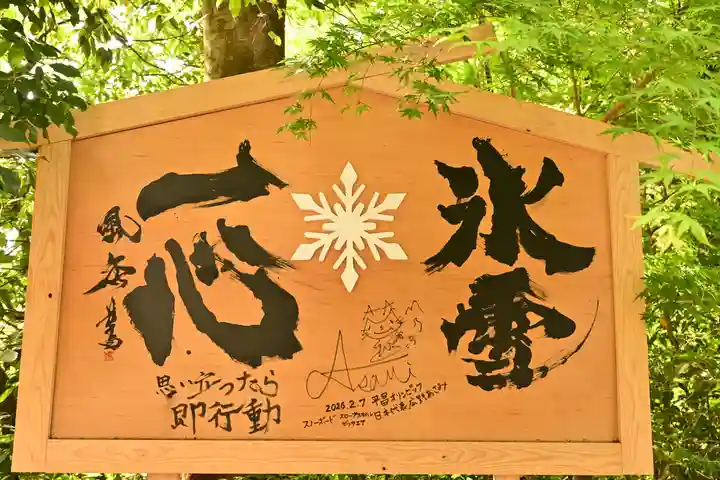 氷雪
一心
思い立ったら
即行動
Asami
2026.2.7 平昌オリンピック
スノーボード スロープスタイル 日本代表 広野あさみ
ビッグエア